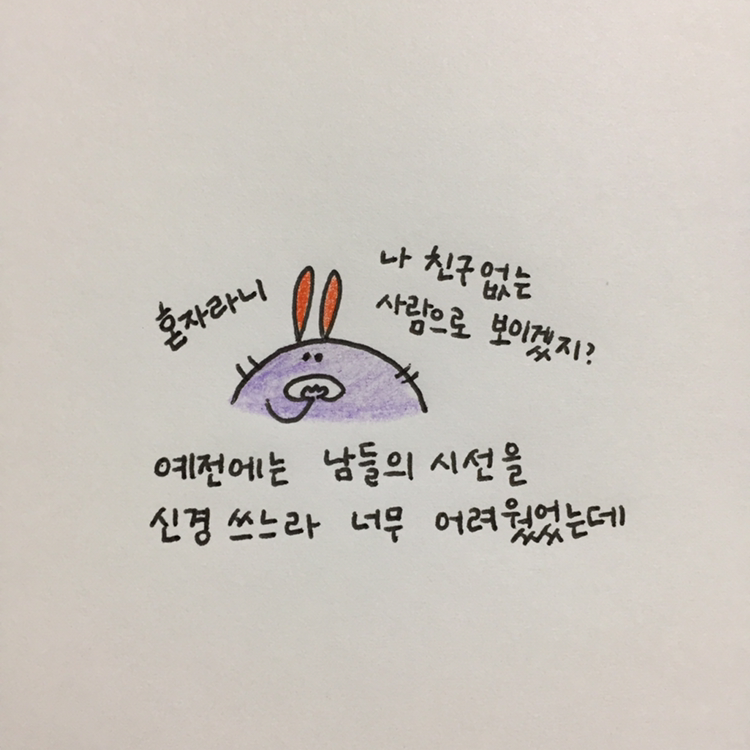 혼자라니
나 친구없는
사람으로 보이겠지?
예전에는 남들의 시선을
신경 쓰느라 너무 어려웠었는데